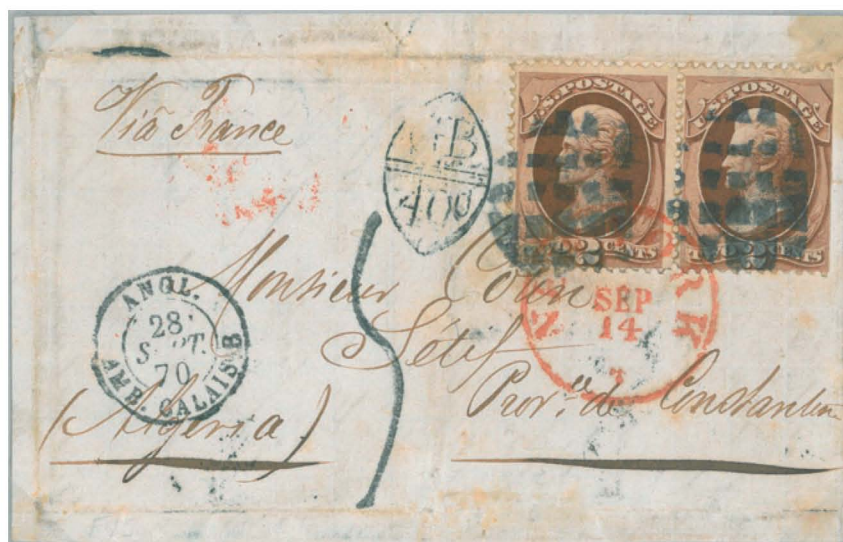 Via France
GB
40c
U.S. POSTAGE
TWO 2 CENTS
U.S. POSTAGE
TWO 2 CENTS
SEP
14
ANGL.
28
SEPT.
70
AMB. CALAIS B
5
Monsieur
Sétif
Prov.ce de Constantine
(Algeria)